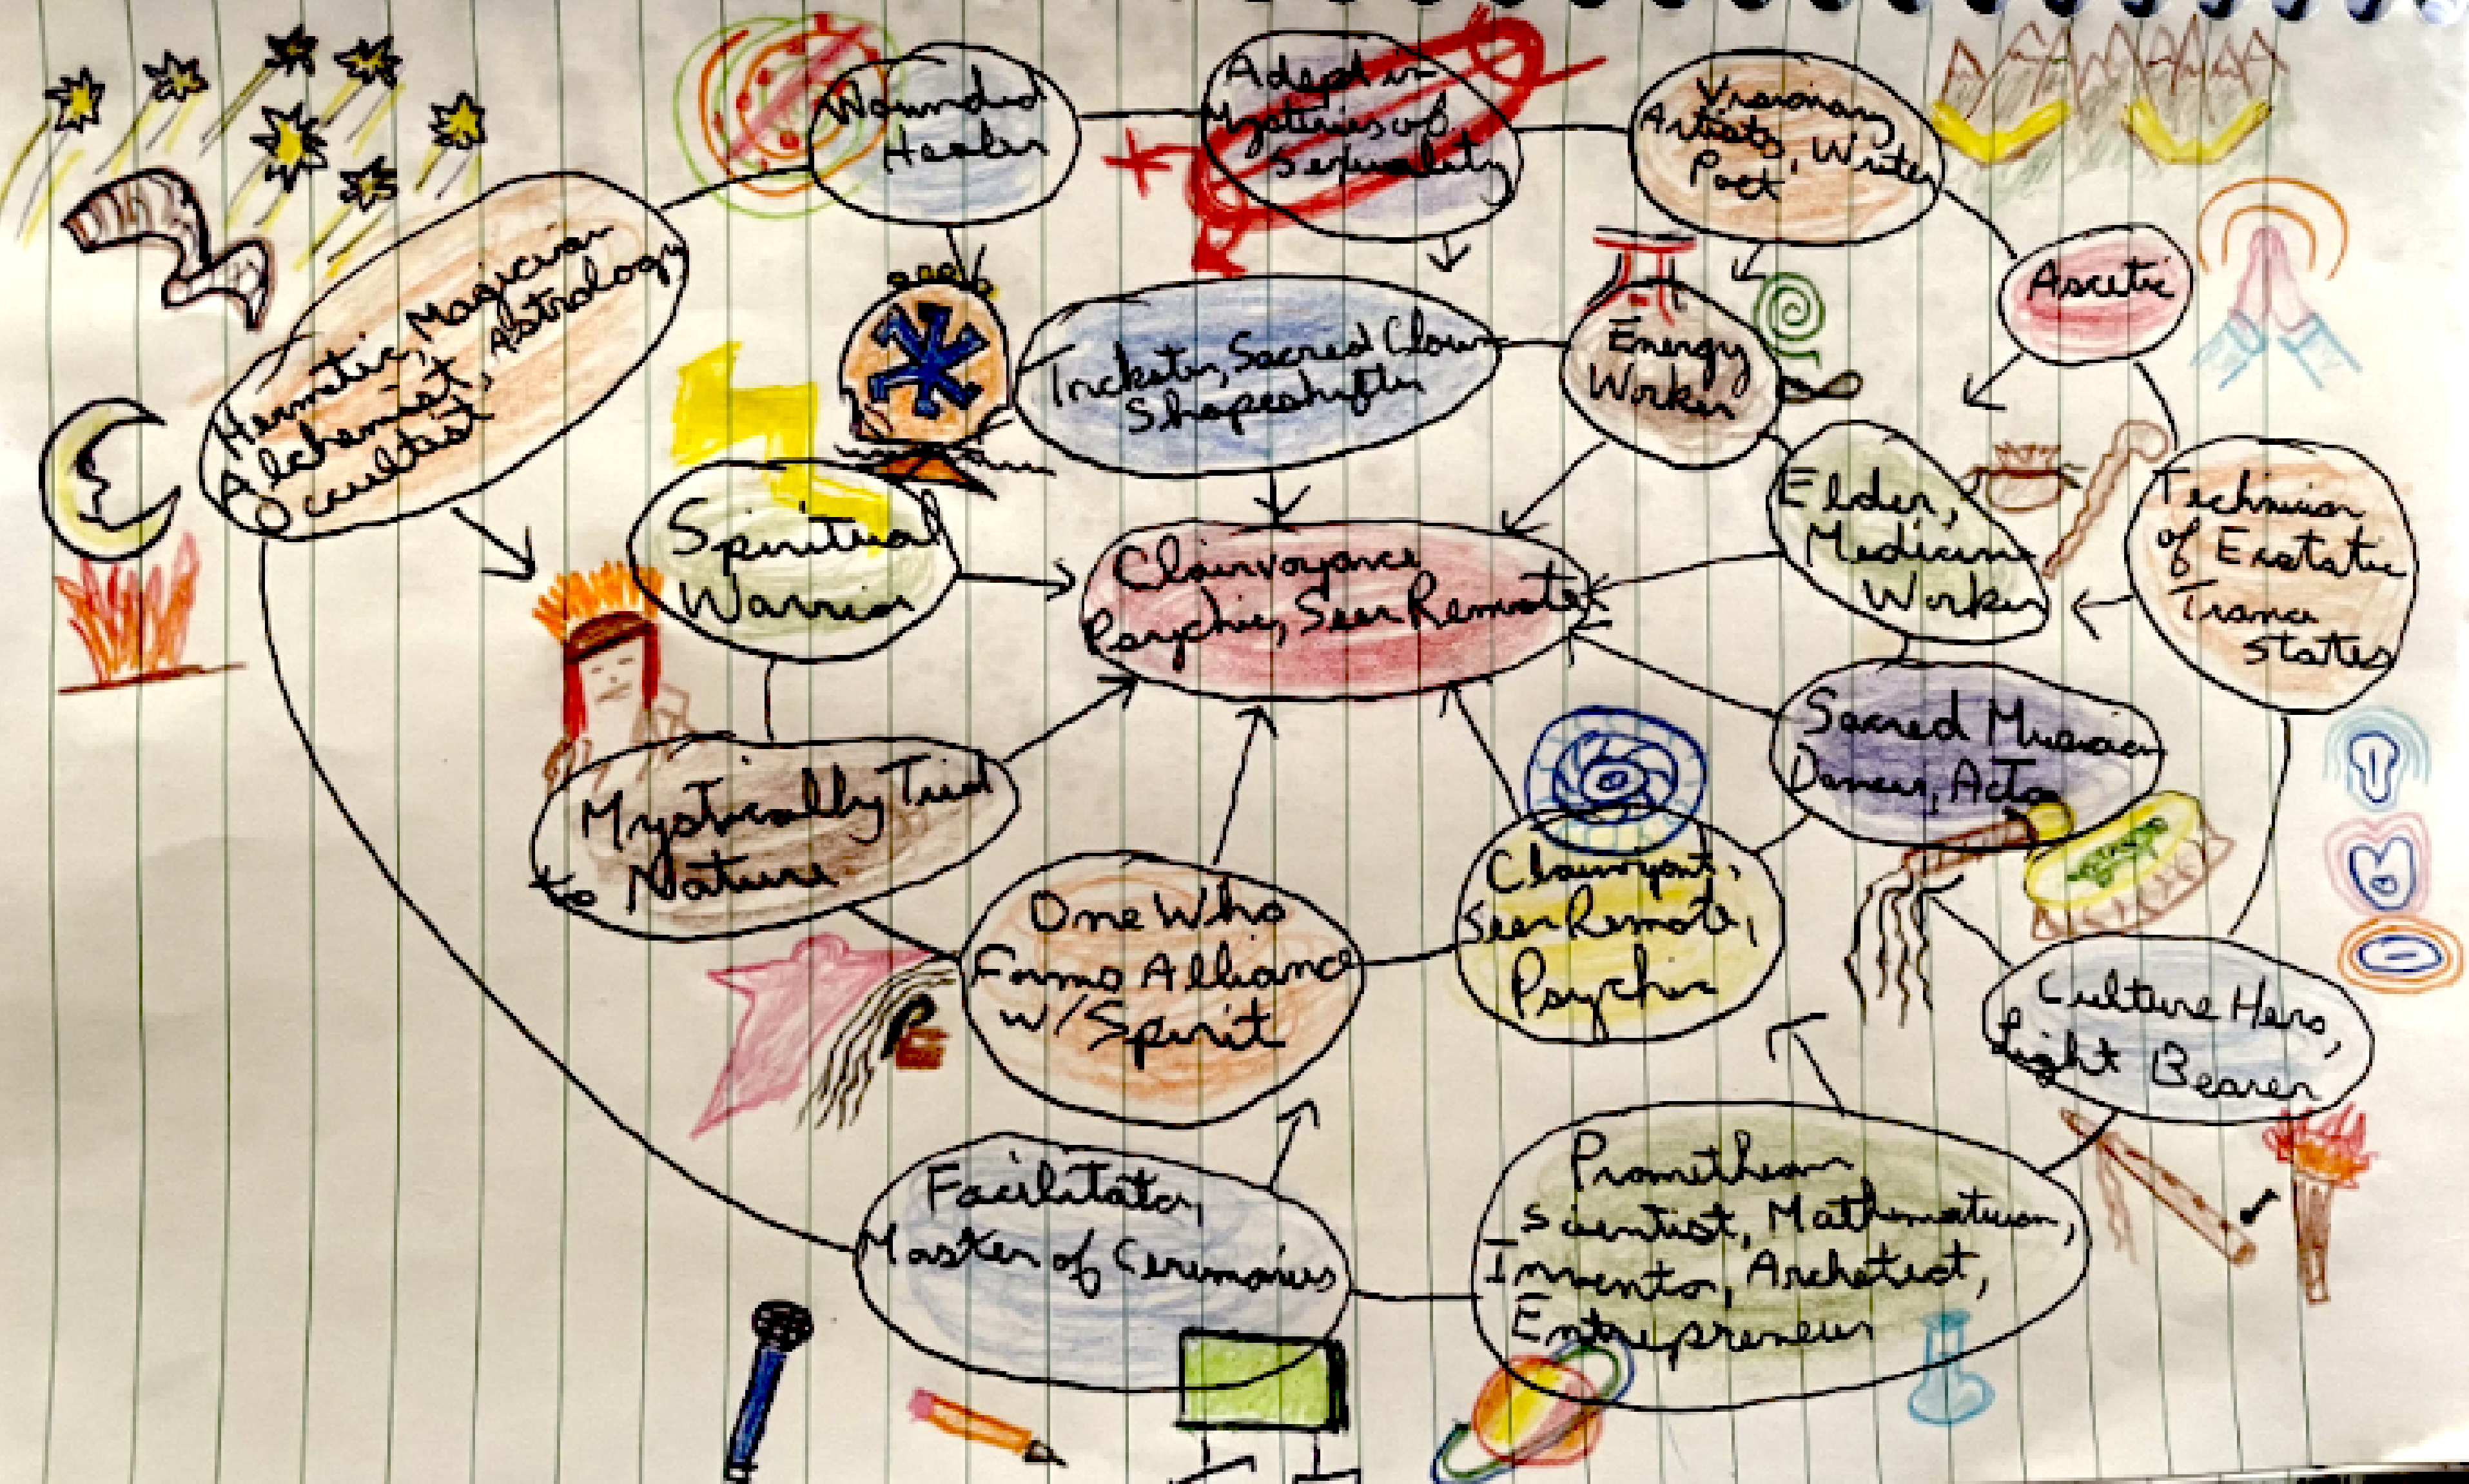 Wounded
Healer
Adept in
Mysteries of
Sexuality
Visionary
Artists, Writer
Poet
Ascetic
Hermetic, Magician
Alchemist, Astrology
Occultist
Trickster, Sacred Clown
Shapeshifter
Energy
Worker
Elder,
Medicine
Worker
Technician
of Ecstatic
Trance
States
Spiritual
Warrior
Clairvoyance
Psychic, Seer Remote
Sacred Musician
Dancer, Actor
Mystically Tied
to Nature
One Who
Forms Alliance
w/Spirit
Clairvoyant,
Seer Remote,
Psychic
Culture Hero,
Light Bearer
Facilitator,
Master of Ceremonies
Promethean
Scientist, Mathematician,
Inventor, Archetist,
Entrepreneur